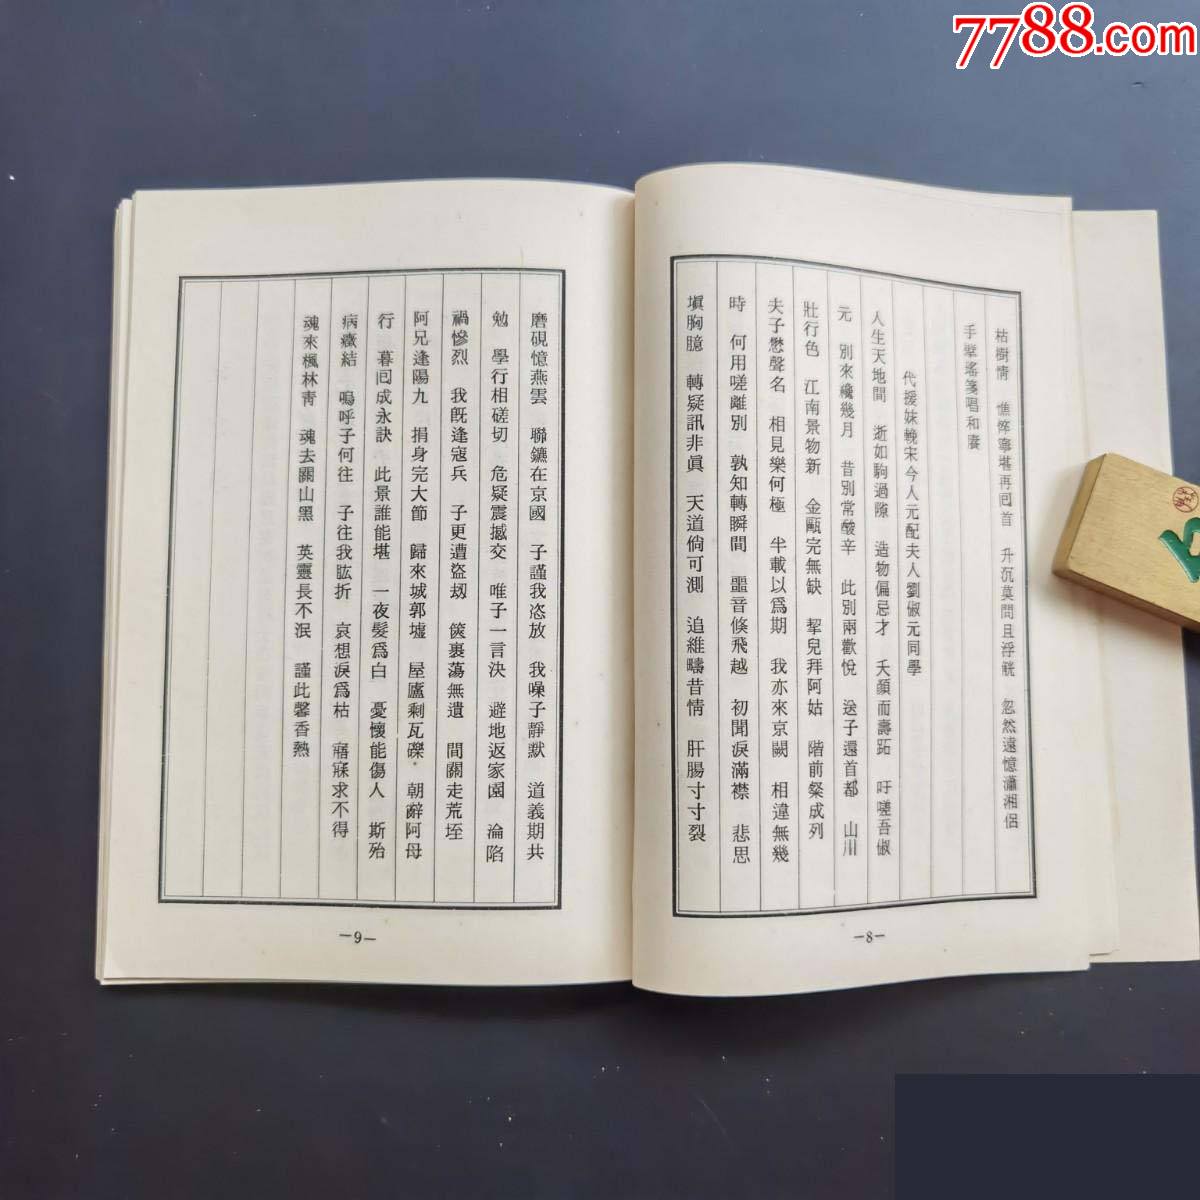 7788.com
枯樹情 憔悴寧堪再囘首 升沉莫問且浮觥 忽然遠憶瀟湘侶
手擘瑤箋唱和賡
代援妹輓宋今人元配夫人劉俶元同學
人生天地間 逝如駒過隙 造物偏忌才 夭顏而壽跖 吁嗟吾俶
元 別來纔幾月 昔別常酸辛 此別兩歡悅 送子還首都 山川
壯行色 江南景物新 金甌完無缺 挈兒拜阿姑 階前粲成列
夫子懋聲名 相見樂何極 半載以爲期 我亦來京闕 相違無幾
時 何用嗟離別 孰知轉瞬間 噩音倐飛越 初聞淚滿襟 悲思
塡胸臆 轉疑訊非眞 天道倘可測 追維疇昔情 肝腸寸寸裂
—8—
磨硯憶燕雲 聯鑣在京國 子謹我恣放 我噪子靜默 道義期共
勉 學行相磋切 危疑震撼交 唯子一言決 避地返家園 淪陷
禍慘烈 我旣逢寇兵 子更遭盜刼 篋裹蕩無遺 間關走荒垤
阿兄逢陽九 捐身完大節 歸來城郭墟 屋廬剩瓦礫 朝辭阿母
行 暮囘成永訣 此景誰能堪 一夜髮爲白 憂懷能傷人 斯殆
病癥結 嗚呼子何往 子往我肱折 哀想淚爲枯 寤寐求不得
魂來楓林靑 魂去關山黑 英靈長不泯 謹此馨香熱
—9—